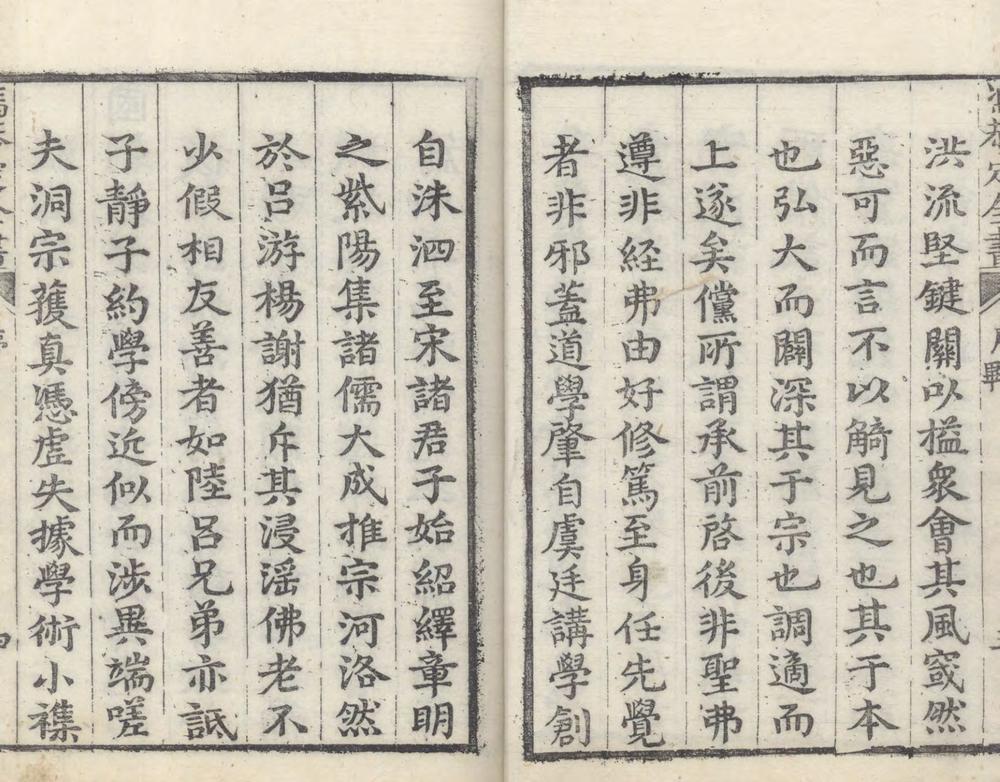 洪流堅鍵關以搤衆會其風窾然
惡可而言不以觭見之也其于本
也弘大而闢深其于宗也調適而
上遂矣儻所謂承前啓後非聖弗
遵非經弗由好修篤至身任先覺
者非邪蓋道學肇自虞廷講學創
自洙泗至宋諸君子始紹繹章明
之紫陽集諸儒大成推宗河洛然
於呂游楊謝猶斥其浸滛佛老不
少假相友善者如陸呂兄弟亦詆
子靜子約學傍近似而涉異端嗟
夫洞宗蒦真憑虗失據學術小襍